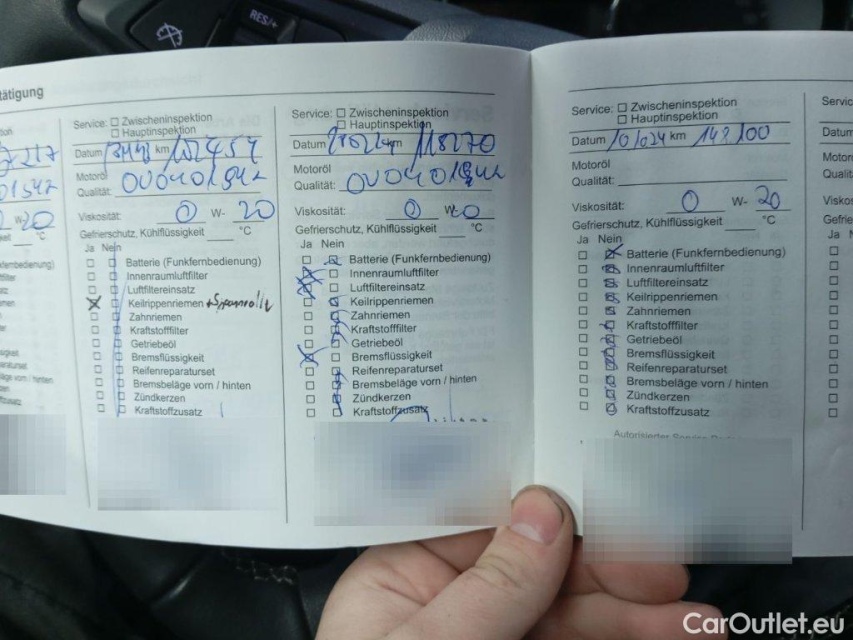 RES/+
tätigung
Service: Zwischeninspektion
Hauptinspektion
Datum km
Motoröl
Qualität: OV0401547
Viskosität: 0 W- 20
Gefrierschutz, Kühlflüssigkeit °C
Ja Nein
Batterie (Funkfernbedienung)
Innenraumluftfilter
Luftfiltereinsatz
Keilrippenriemen + Spannrolle
Zahnriemen
Kraftstofffilter
Getriebeöl
Bremsflüssigkeit
Reifenreparaturset
Bremsbeläge vorn / hinten
Zündkerzen
Kraftstoffzusatz
Service: Zwischeninspektion
Hauptinspektion
Datum km 118270
Motoröl
Qualität:
Viskosität: 0 W- 20
Gefrierschutz, Kühlflüssigkeit °C
Ja Nein
Batterie (Funkfernbedienung)
Innenraumluftfilter
Luftfiltereinsatz
Keilrippenriemen
Zahnriemen
Kraftstofffilter
Getriebeöl
Bremsflüssigkeit
Reifenreparaturset
Bremsbeläge vorn / hinten
Zündkerzen
Kraftstoffzusatz
Service: Zwischeninspektion
Hauptinspektion
Datum km 148100
Motoröl
Qualität:
Viskosität: 0 W- 20
Gefrierschutz, Kühlflüssigkeit °C
Ja Nein
Batterie (Funkfernbedienung)
Innenraumluftfilter
Luftfiltereinsatz
Keilrippenriemen
Zahnriemen
Kraftstofffilter
Getriebeöl
Bremsflüssigkeit
Reifenreparaturset
Bremsbeläge vorn / hinten
Zündkerzen
Kraftstoffzusatz
Servic
Datum
Motor
Qualitä
Viskos
Gefrie
Ja
CarOutlet.eu